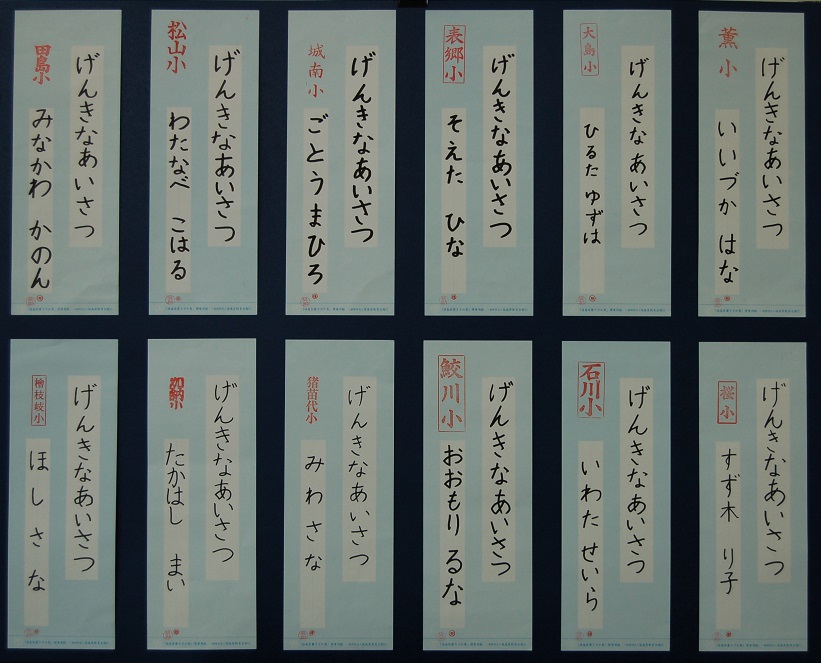 げんきなあいさつ
薫小
いいづか はな
げんきなあいさつ
大島小
ひるた ゆずは
げんきなあいさつ
表郷小
そえた ひな
げんきなあいさつ
城南小
ごとうまひろ
げんきなあいさつ
松山小
わたなべ こはる
げんきなあいさつ
田島小
みなかわ かのん
げんきなあいさつ
桜小
すず木 り子
げんきなあいさつ
石川小
いわた せいら
げんきなあいさつ
鮫川小
おおもり るな
げんきなあいさつ
猪苗代小
みわ さな
げんきなあいさつ
加納小
たかはし まい
げんきなあいさつ
檜枝岐小
ほし さな